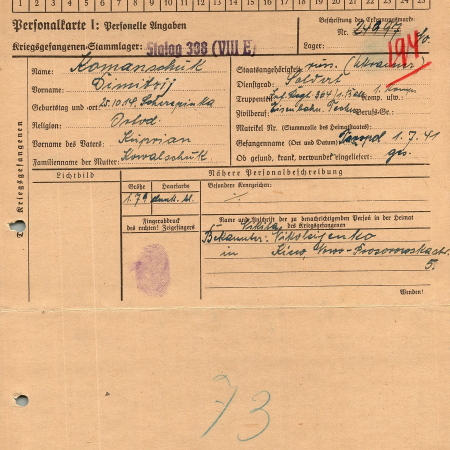 1 2 3 4 5 6 7 8 9 10 11 12 13 14 15 16 17 18 19 20 21 22 23 24 25
Personalkarte I: Personelle Angaben
Kriegsgefangenen-Stammlager: Stalag 388 (VIII E)
Beschriftung der Erkennungsmarke
Nr. 24997
Lager:
194
Name: Romanschuk
Vorname: Dimitrij
Geburtstag und -ort: 25.10.14,
Religion: Ortod
Vorname des Vaters: Kuprian
Familienname der Mutter: Kowalschuk
Staatsangehörigkeit: russ. (Ukrainer)
Dienstgrad: Soldat
Truppenteil: 364 Komp. usw.:
Zivilberuf: Eisenbahn. Berufs-Gr.:
Matrikel Nr. (Stammrolle des Heimatstaates):
Gefangennahme (Ort und Datum): Tarnopol 1.7.41
Ob gesund, krank, verwundet eingeliefert: ges.
Des Kriegsgefangenen
Lichtbild
Nähere Personalbeschreibung
Größe
Haarfarbe
Besondere Kennzeichen:
1.79
dunk. bl.
Fingerabdruck
des rechten! Zeigefingers
Name und Anschrift der zu benachrichtigenden Person in der Heimat
des Kriegsgefangenen
Bekannter:
in
5.
Wenden!
73